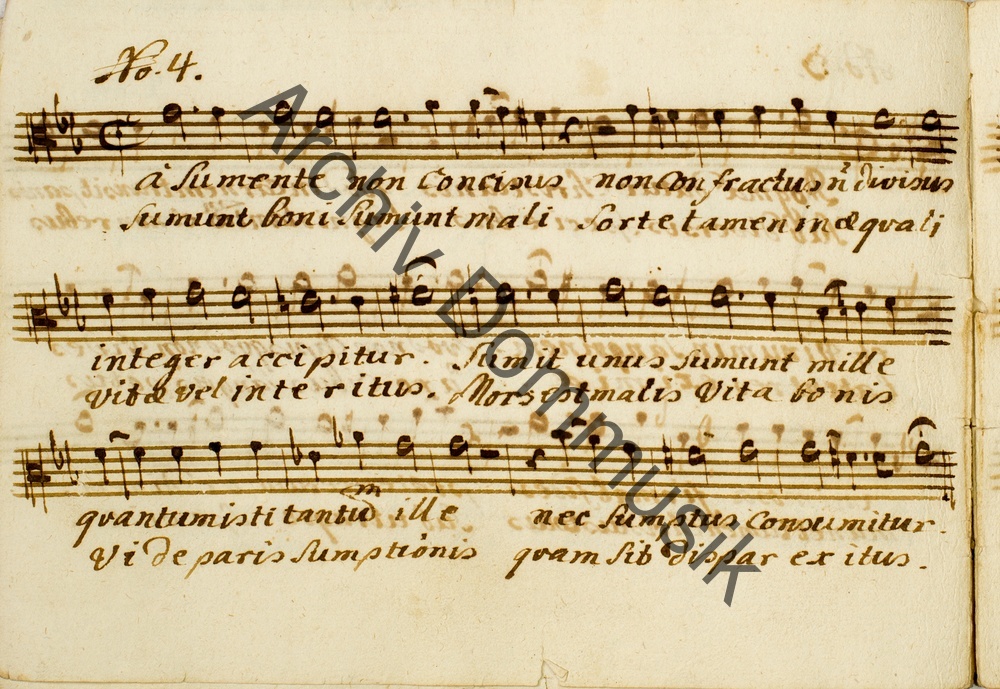 No. 4.
à Sumente non Concisus non Confractus n̄ divisus
Sumunt boni Sumunt mali Sorte tamen inæquali
integer accipitur. Sumit unus sumunt mille
vitæ vel interitus. Mors est malis Vita bonis
quantum isti tantū ille nec Sumptus Consumitur.
m
Vide paris Sumptionis quam Sit dispar exitus.
Archiv Dommusik